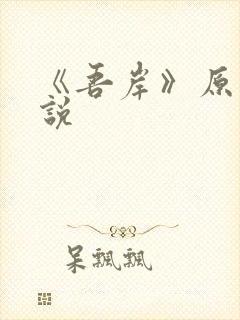 《吾岸》原
說
呆飄飄